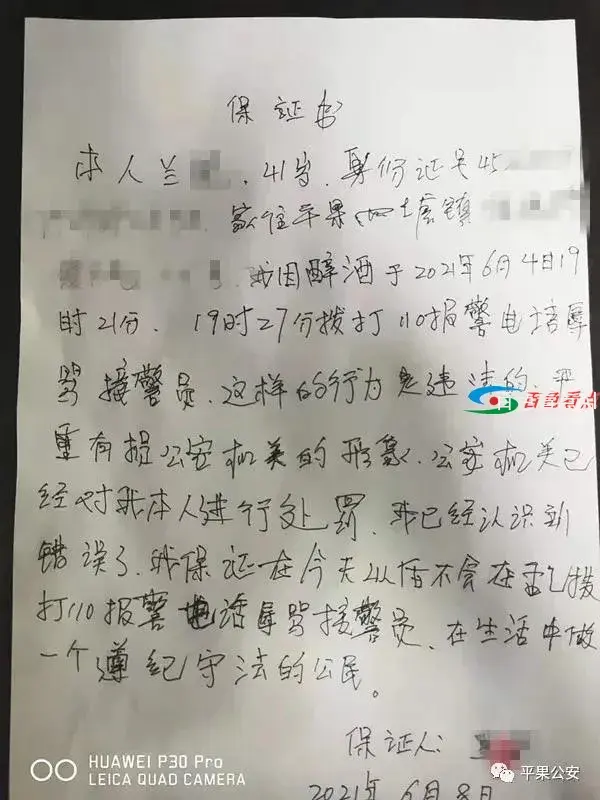 保证书
本人兰 , 41岁, 身份证号45
家住平果市 镇
我因醉酒于2021年6月4日19
时21分、19时27分拨打110报警电话辱
骂接警员、这样的行为是违法的、严
重有损公安机关的形象、公安机关已
经对我本人进行处罚、我已经认识到
错误了、我保证在今天以后不会在乱拨
打110报警电话辱骂接警员、在生活中做
一个遵纪守法的公民。
保证人:
2021年6月8日
百色看点
HUAWEI P30 Pro
LEICA QUAD CAMERA
平果公安